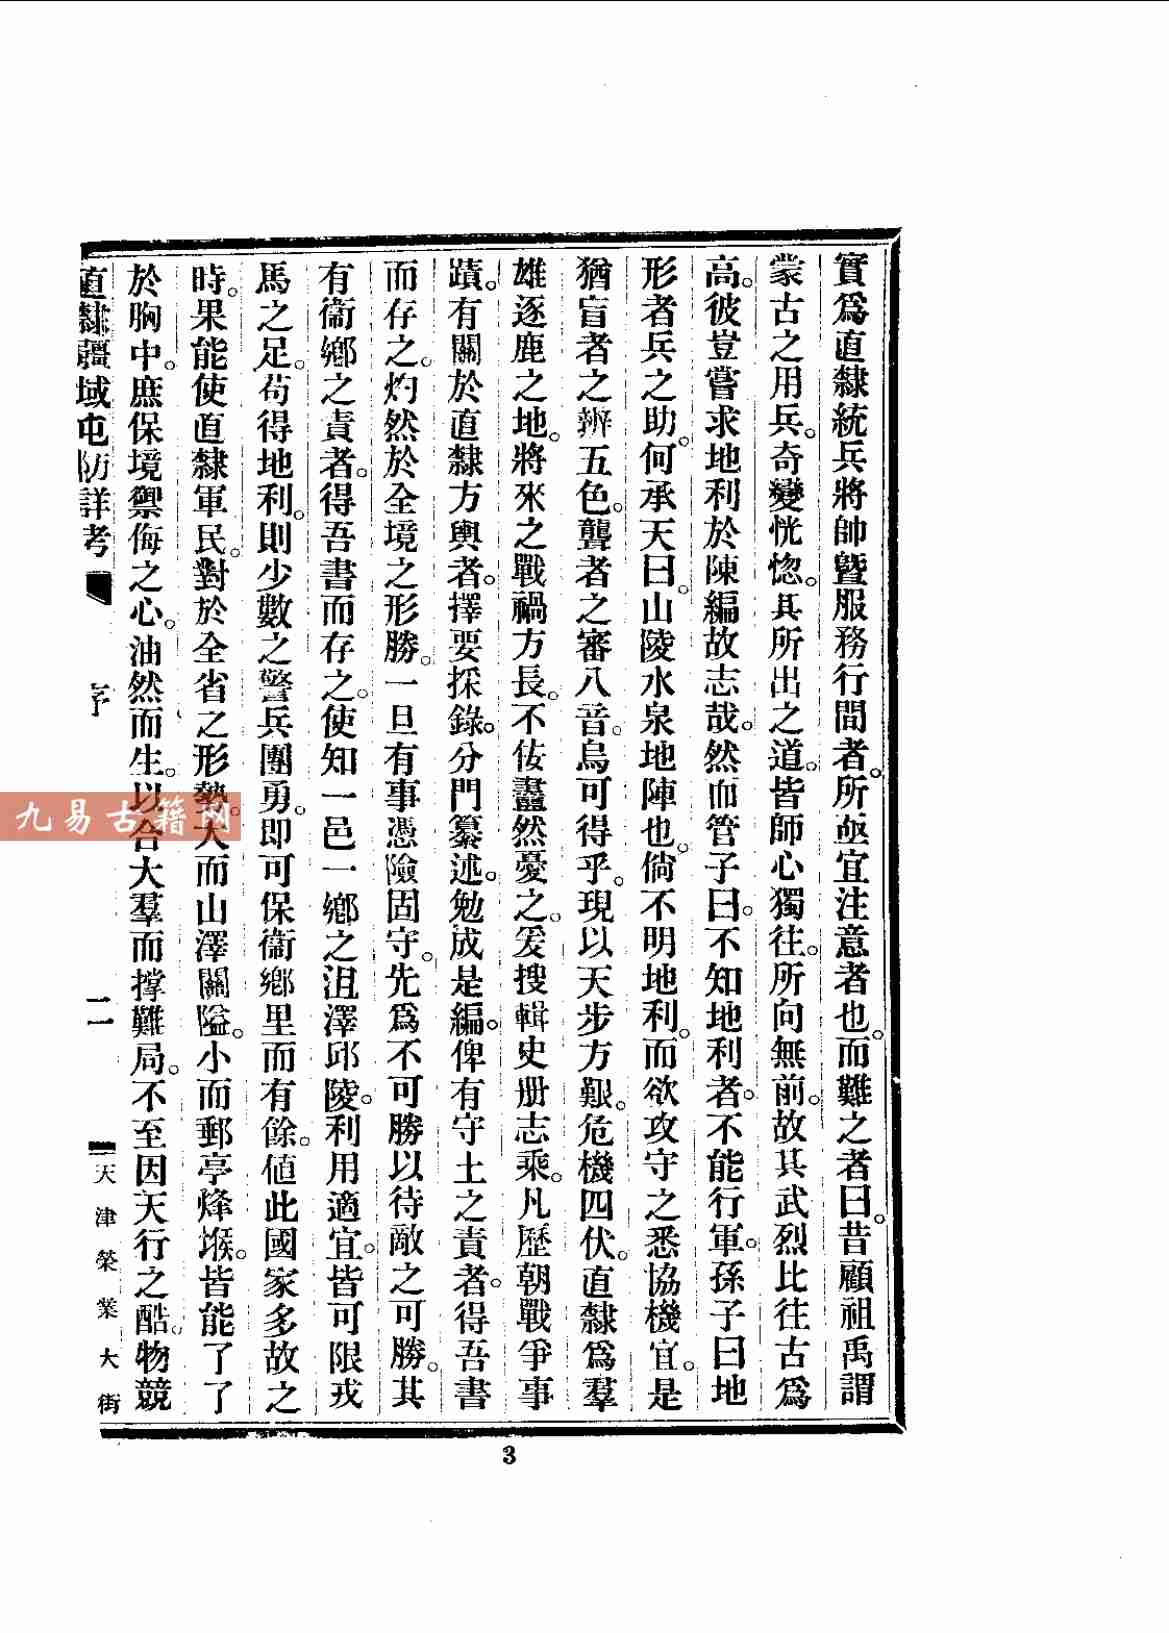 實爲直隸統兵將帥曁服務行間者。所亟宜注意者也。而難之者曰。昔顧祖禹謂
蒙古之用兵。奇變恍惚。其所出之道。皆師心獨往。所向無前。故其武烈比往古爲
高。彼豈嘗求地利於陳編故志哉。然而管子曰。不知地利者。不能行軍。孫子曰地
形者兵之助。何承天曰。山陵水泉地陣也。倘不明地利。而欲攻守之悉協機宜。是
猶盲者之辨五色。聾者之審八音。烏可得乎。現以天步方艱。危機四伏。直隸爲羣
雄逐鹿之地。將來之戰禍方長。不佞盡然憂之。爰搜輯史册志乘。凡歷朝戰爭事
蹟。有關於直隸方輿者。擇要採錄。分門纂述。勉成是編。俾有守土之責者。得吾書
而存之。灼然於全境之形勝。一旦有事憑險固守。先爲不可勝以待敵之可勝。其
有衞鄉之責者。得吾書而存之。使知一邑一鄉之沮澤邱陵。利用適宜。皆可限戎
馬之足。苟得地利。則少數之警兵團勇。即可保衞鄉里而有餘。値此國家多故之
時。果能使直隸軍民。對於全省之形勢。大而山澤關隘。小而郵亭烽堠。皆能了了
於胸中。庶保境禦侮之心。油然而生。以合大羣而撑難局。不至因天行之酷。物競
直隸疆域屯防詳考
序
二
天津榮業大街
3
九易古籍网